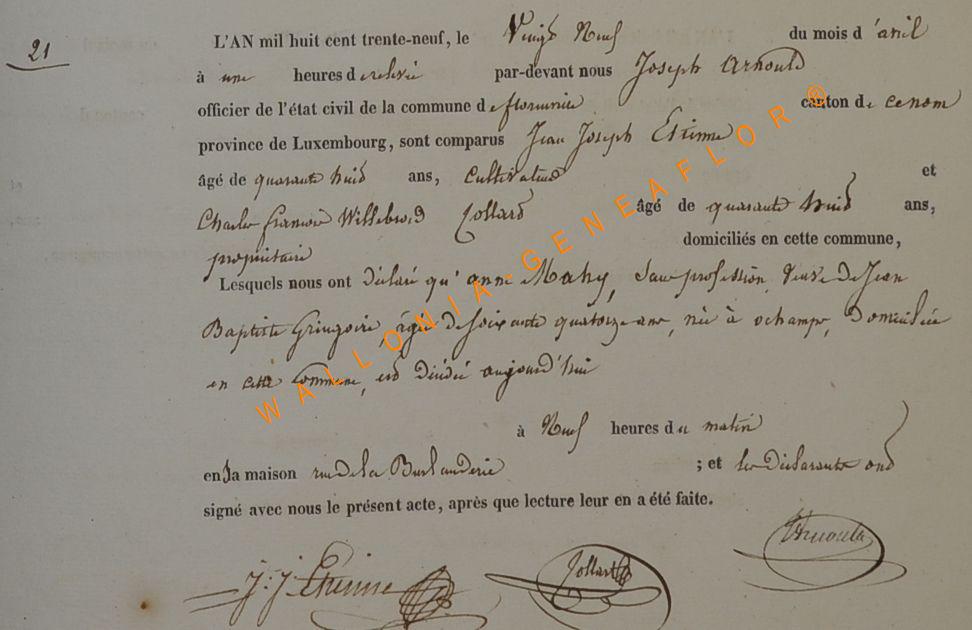 21
L'AN mil huit cent trente-neuf, le Vingt Neuf du mois d'avril
à une heures de relevée par-devant nous Joseph Arnould
officier de l'état civil de la commune de florenville canton de
province de Luxembourg, sont comparus Jean Joseph Etienne
âgé de quarante huit ans, cultivateur et
Charles françois Willebrord Collard âgé de quarante huit ans,
propriétaire domiciliés en cette commune,
Lesquels nous ont déclaré qu'anne Mahy, Sans profession, veuve de Jean
Baptiste Gringoire, âgée de soixante quatorze ans, née à ochamps, domiciliée
en cette commune, est décédée aujourd'hui
à Neuf heures du matin
en sa maison rue de la ; et les déclarants ont
signé avec nous le présent acte, après que lecture leur en a été faite.
J. J. Etienne Collard Arnould
WALLONIA-GENEAFLOR ®